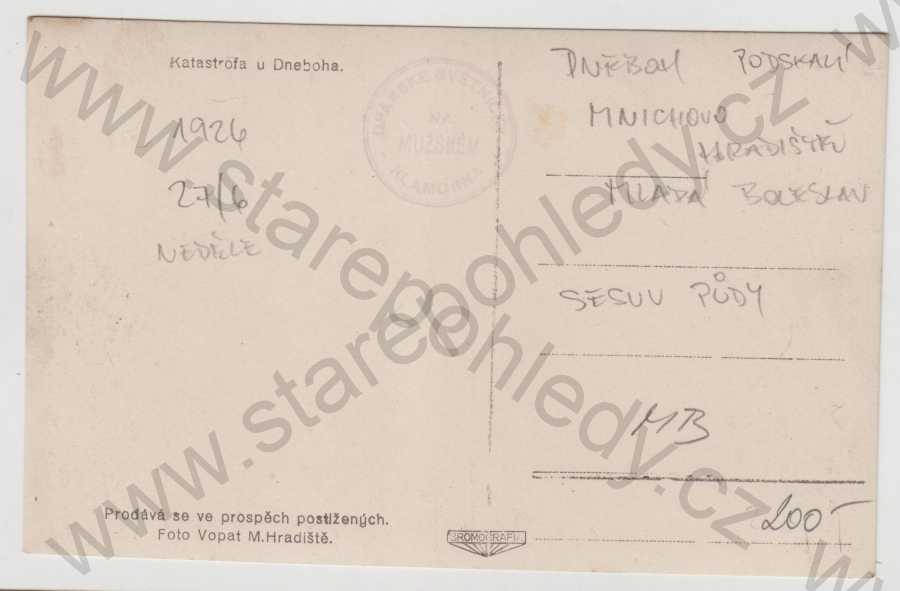 Katastrofa u Dneboha.
1926
27/6
NEDĚLE
DRÁBSKÉ SVĚTNICE
NA
MUŽSKÉM
KLAMORNA
DNEBOH PODSKALÍ
MNICHOVO
HRADIŠTĚ
MLADÁ BOLESLAV
SESUV PŮDY
MB
200-
Prodává se ve prospěch postižených.
Foto Vopat M.Hradiště.
BROMOGRAFIA
www.starepohledy.cz
www.starepohledy.cz